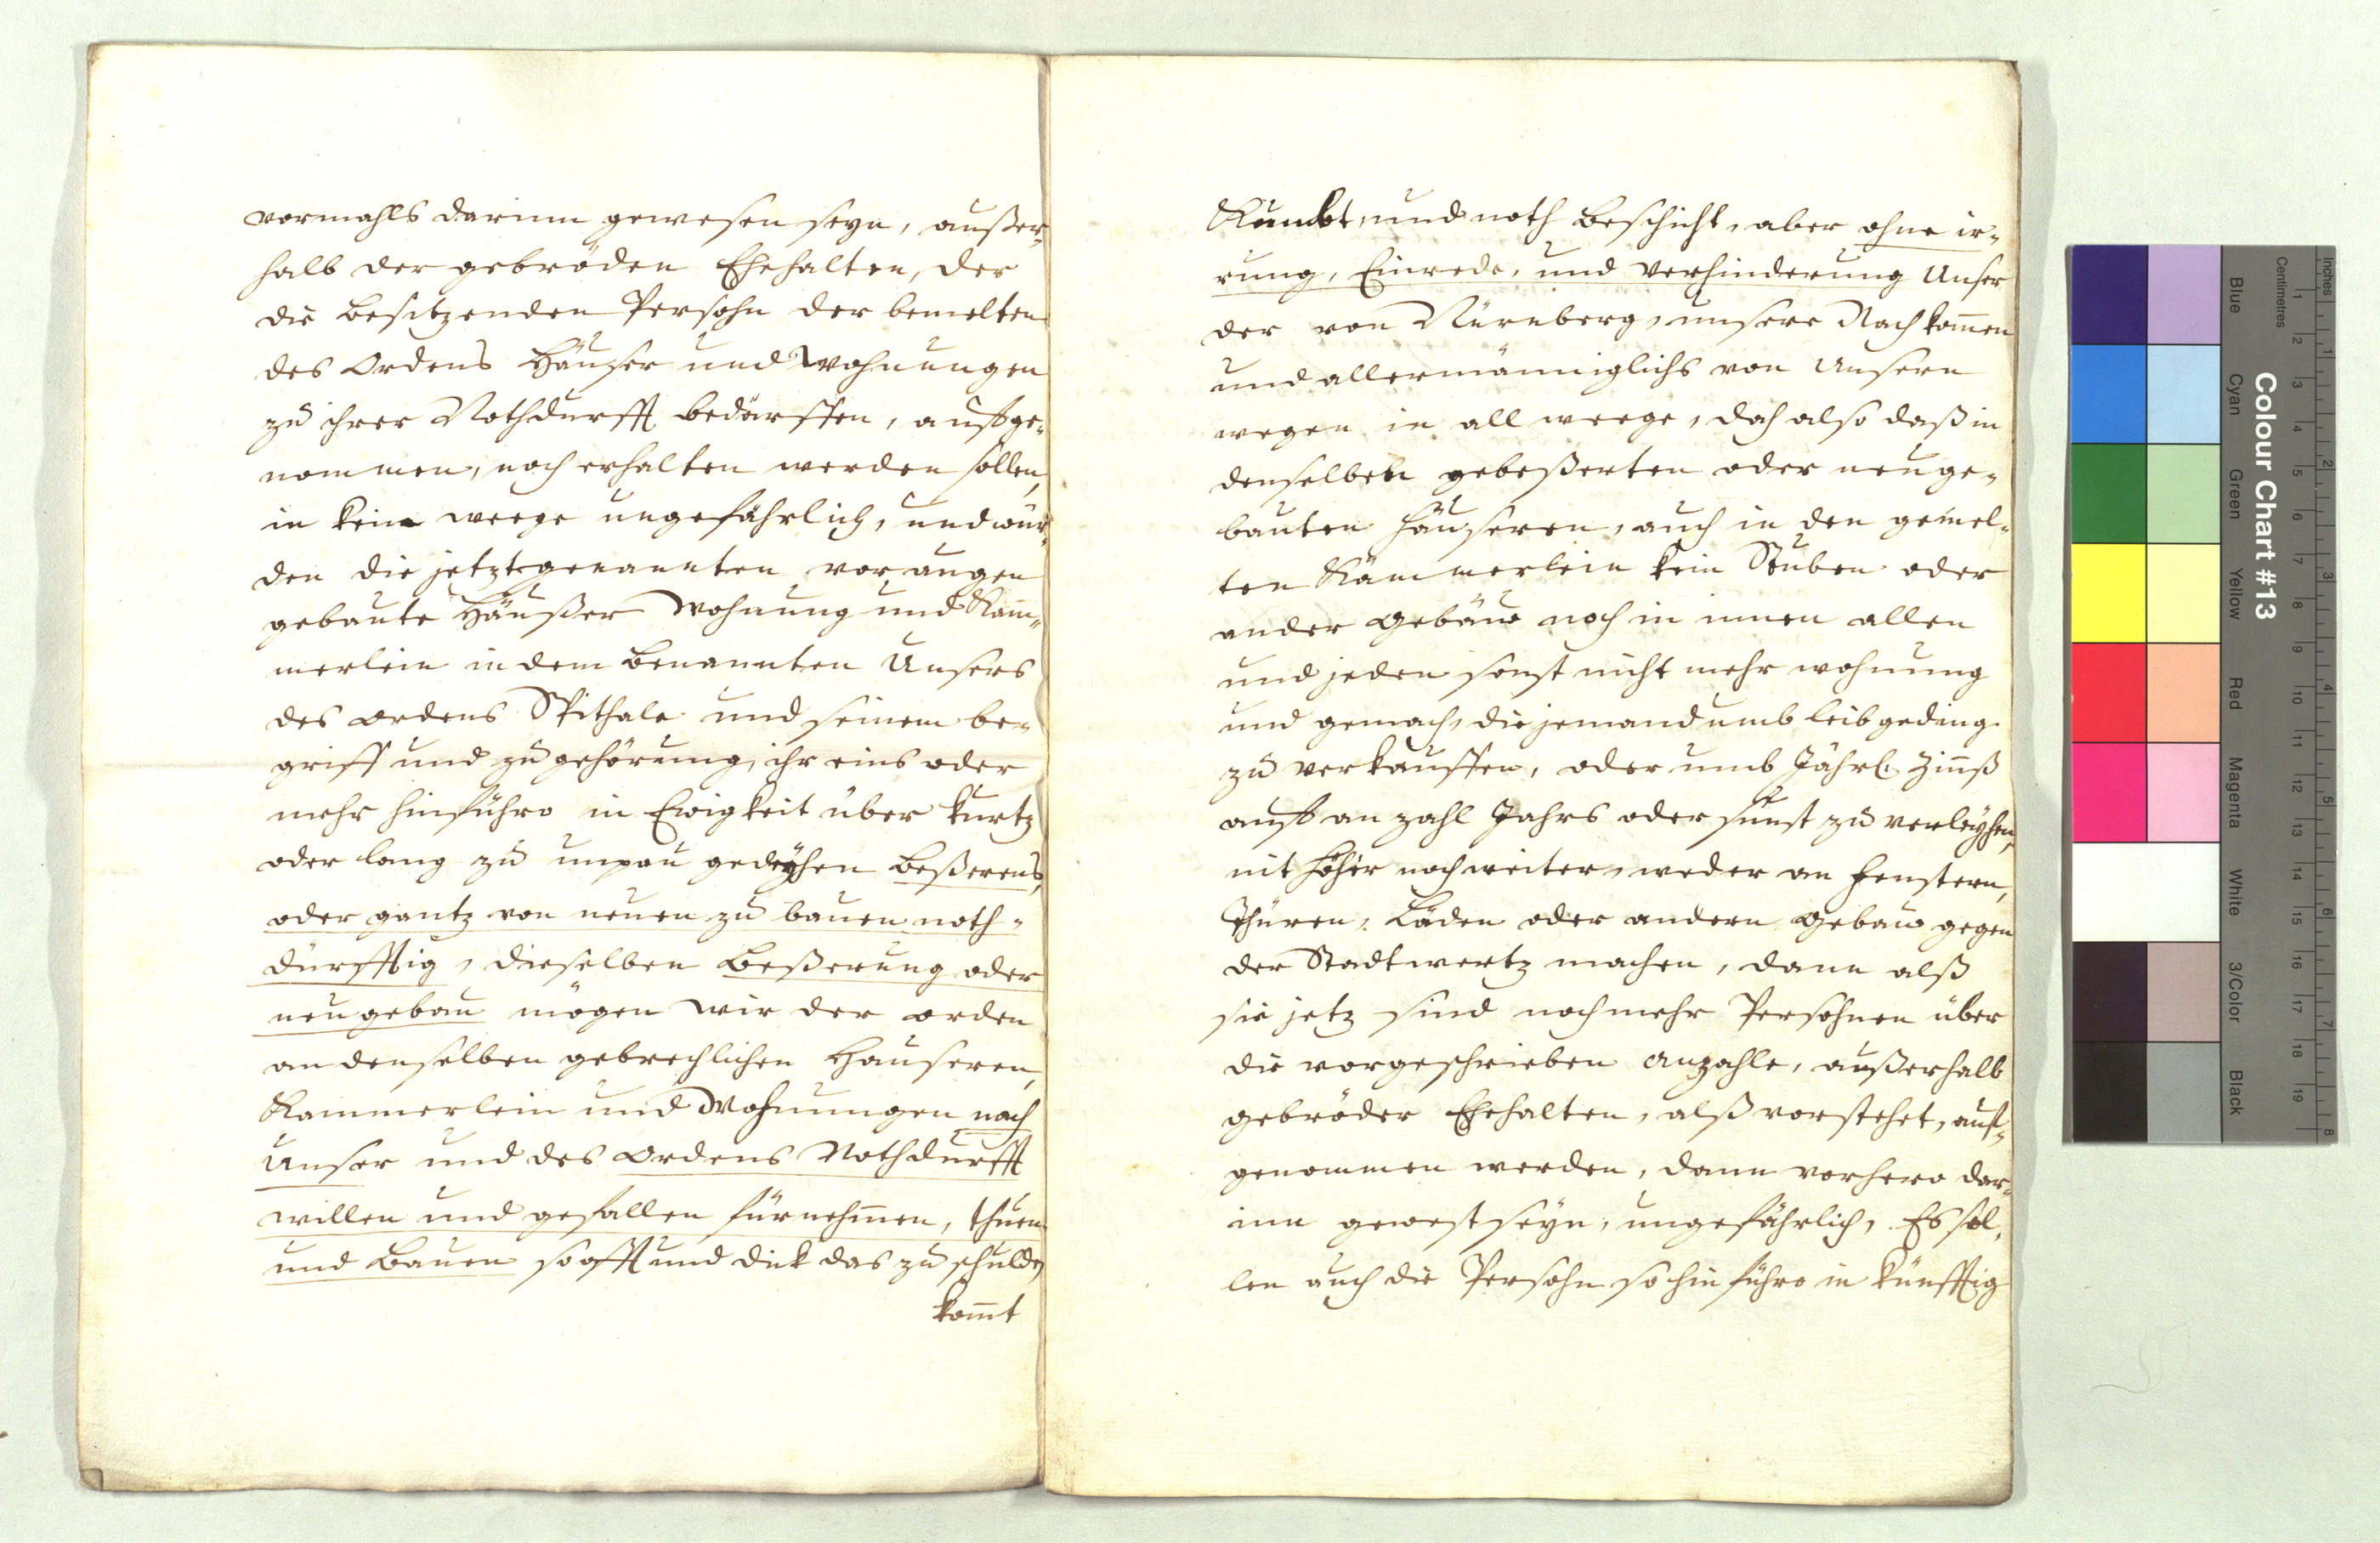 vormahls darinn gewesen seyn, außer-
halb der gebröden Ehehalten, der
die besitzenden Persohn der bemelten
des Ordens Häuser und Wohnungen
zu ihrer Nothdurfft bedörfften, auffge-
nommen, noch erhalten werden sollen,
in kein weege ungefährlich, und wür-
den die jetztgenannten vor augen
gebaute Häußer Wohnung und Kam̄-
merlein in dem benannten Unsers
des Ordens Spithale und seinem be-
griff und zu gehörung, ihr eins oder
mehr hinführo in Ewigkeit über kurtz
oder lang zu unpau gedeyhen beßerens,
oder gantz von neuen zu bauen noth-
dürfftig, dieselben beßerung oder
neugebau mögen wir der orden
an denselben gebrechlichen Hauseren,
Kammerlein und Wohnungen nach
Unser und des Ordens Nothdurfft
willen und gefallen fürnehm̄en, thuen
und bauen so offt und dick das zu schulden
kom̄t
Kumbt, und noth beschicht, aber ohne ir-
rung, Einrede, und verhinderung Unser
der von Nürnberg, unsere Nachkom̄en
und allermänniglichs von Unsern
wegen in all weege, doch also daß in
denselben gebeßerten oder neuge-
bauten Häuseren, auch in den gemel-
ten Kämmerlein kein Stuben oder
ander gebäw noch in innen allen
und jeden sonst nicht mehr wohnung
und gemach, die jemand umb leibgeding
zu verkauffen, oder umb Jährl. Zinß
auff an zahl Jahrs oder sunst zu verleyhen,
nit höher noch weiter, weder an fenstern,
Thüren, Läden oder andern gebäw gegen
der Stadtwertz machen, dann alß
sie jetz sind noch mehr Persohnen über
die vorgeschrieben anzahle, außerhalb
gebröder Ehehalten, alß vorstehet, auf-
genommen werden, dann vorhero dar-
inn gewest seyn, ungefährlich, Es sol-
len auch die Persohn so hinführo in künfftig